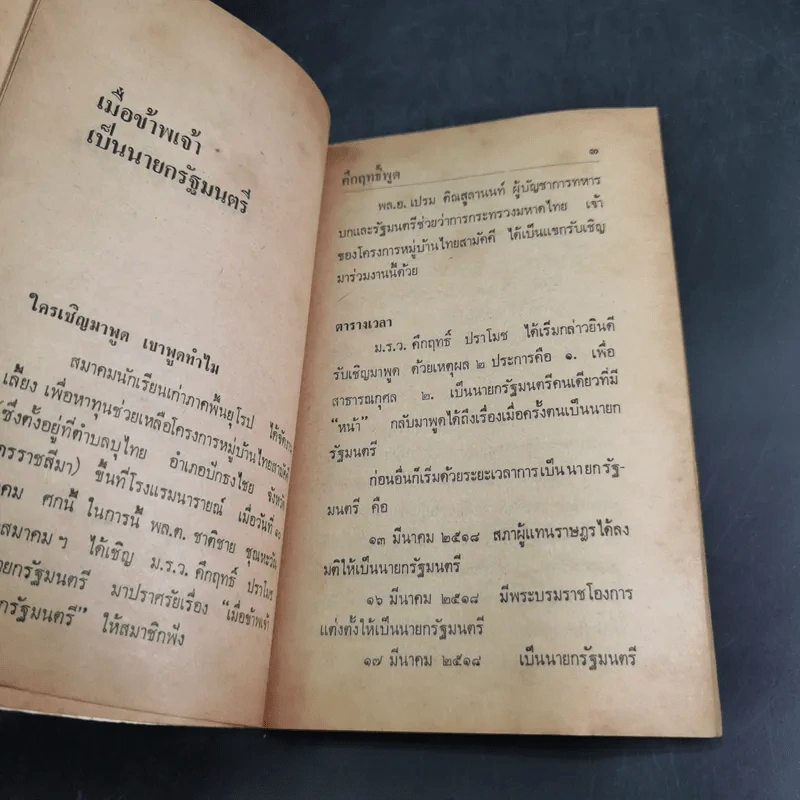 เมื่อข้าพเจ้า
เป็นนายกรัฐมนตรี
ใครเชิญมาพูด เขาพูดทำไม
สมาคมนักเรียนเก่าภาคพื้นยุโรป ได้จัดงาน
เลี้ยง เพื่อหาทุนช่วยเหลือโครงการหมู่บ้านไทยสามัคคี
(ซึ่งตั้งอยู่ที่ตำบลบุไทย อำเภอปักธงไชย จังหวัด
ครราชสีมา) ขึ้นที่โรงแรมนารายณ์ เมื่อวันที่
คม ศกนี้ ในการนี้ พล.ต. ชาติชาย ชุณหะวัณ
สมาคมฯ ได้เชิญ ม.ร.ว. คึกฤทธิ์ ปราโมช
ายกรัฐมนตรี มาปราศรัยเรื่อง “เมื่อข้าพเจ้า
กรัฐมนตรี” ให้สมาชิกฟัง
คึกฤทธิ์พูด ๓
พล.อ. เปรม ติณสูลานนท์ ผู้บัญชาการทหาร
บกและรัฐมนตรีช่วยว่าการกระทรวงมหาดไทย เจ้า
ของโครงการหมู่บ้านไทยสามัคคี ได้เป็นแขกรับเชิญ
มาร่วมงานนี้ด้วย
ตารางเวลา
ม.ร.ว. คึกฤทธิ์ ปราโมช ได้เริ่มกล่าวยินดี
รับเชิญมาพูด ด้วยเหตุผล ๒ ประการคือ ๑. เพื่อ
สาธารณกุศล ๒. เป็นนายกรัฐมนตรีคนเดียวที่มี
“หน้า” กลับมาพูดได้ถึงเรื่องเมื่อครั้งตนเป็นนายก
รัฐมนตรี
ก่อนอื่นก็เริ่มด้วยระยะเวลาการเป็นนายกรัฐ-
มนตรี คือ
๑๓ มีนาคม ๒๕๑๘ สภาผู้แทนราษฎรได้ลง
มติให้เป็นนายกรัฐมนตรี
๑๖ มีนาคม ๒๕๑๘ มีพระบรมราชโองการ
แต่งตั้งให้เป็นนายกรัฐมนตรี
๑๗ มีนาคม ๒๕๑๘ เป็นนายกรัฐมนตรี